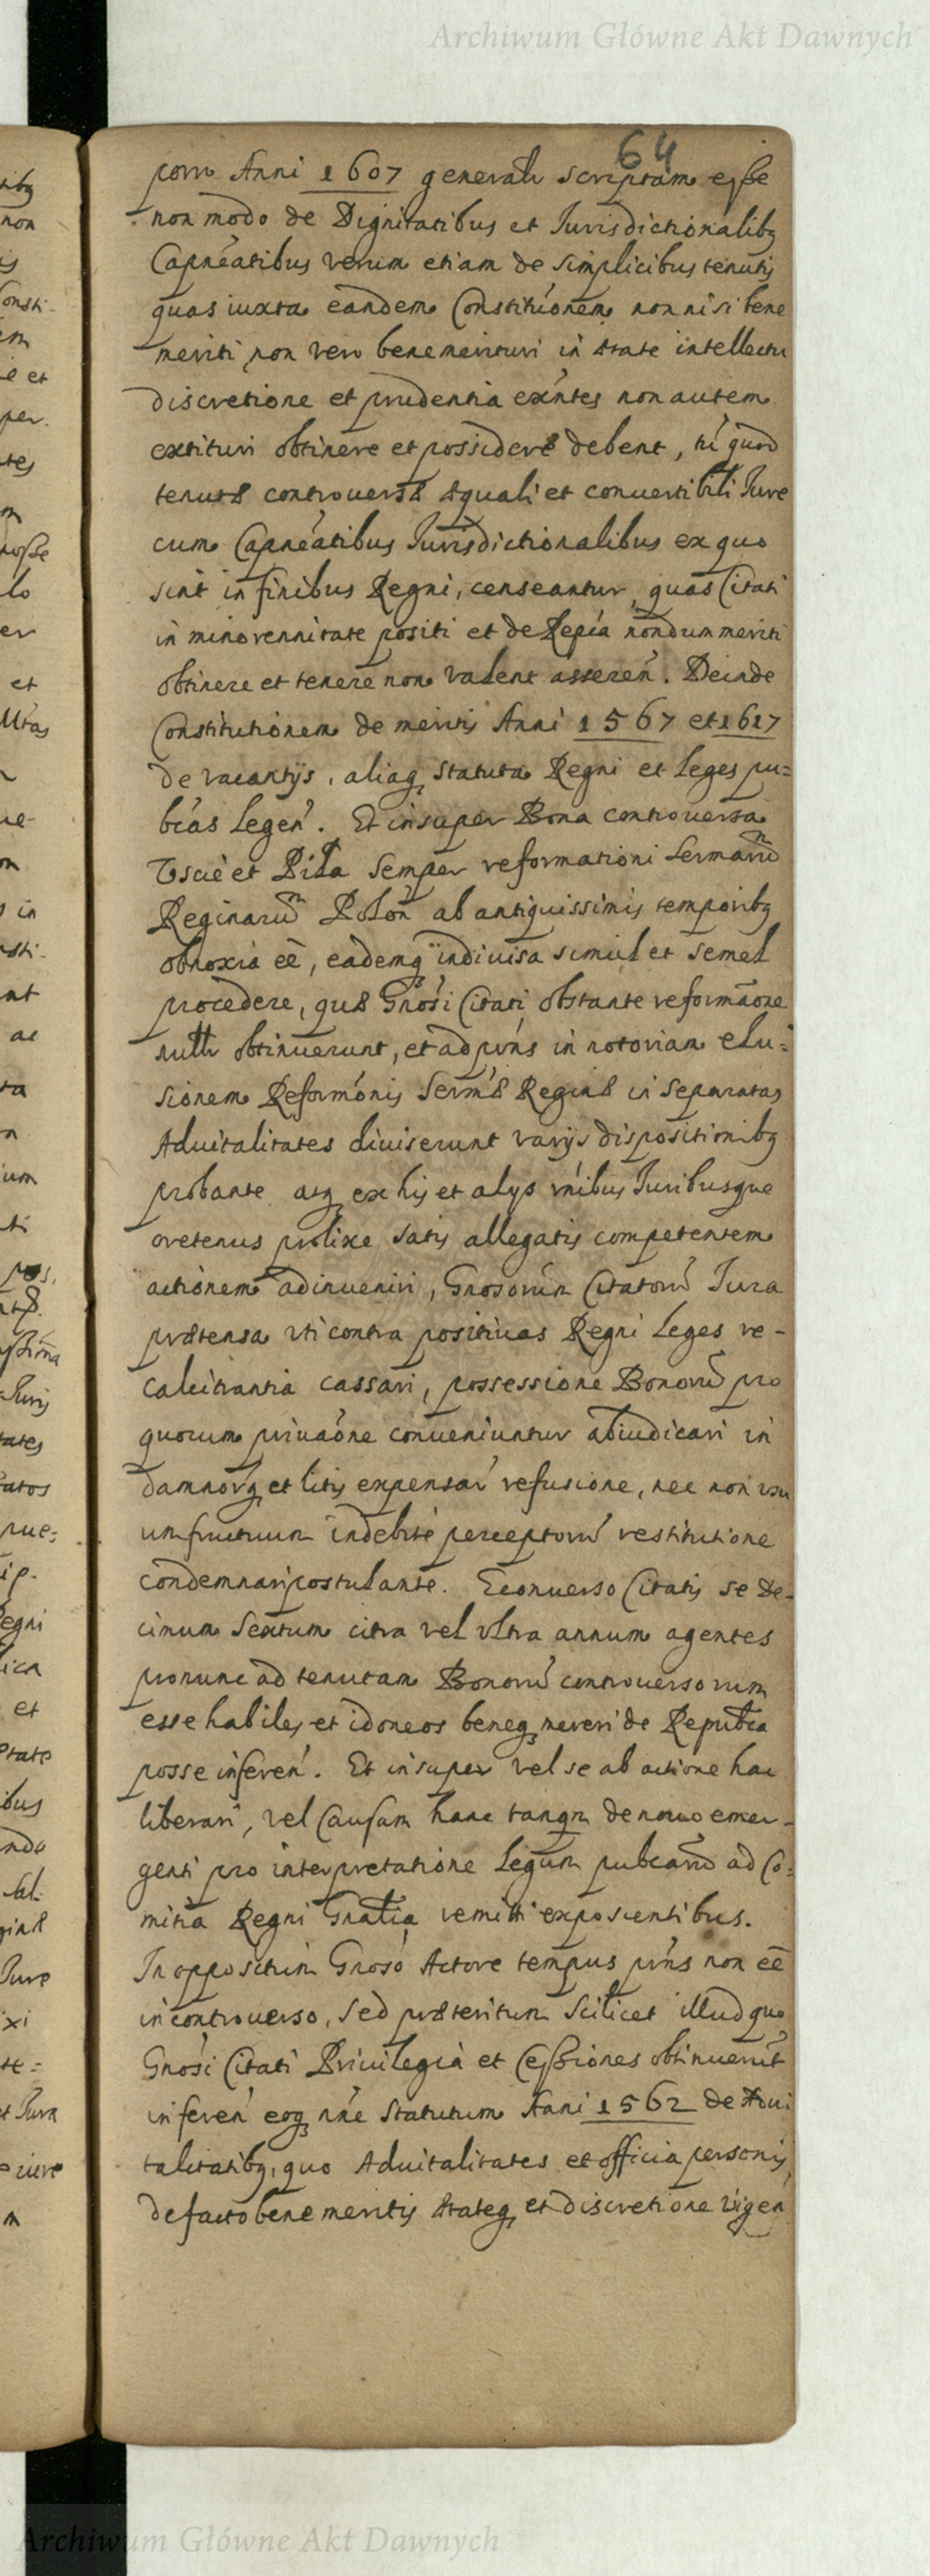 Archiwum Główne Akt Dawnych
64
porro Anni 1607 generali scriptam esse
non modo de Dignitatibus et Jurisdictionalibq
Capnéatibus verum etiam de simplicibus tenutis
quas iuxta eandem Constitúonem non nisi bene
meriti non vero benemerituri in ætate intellectu
discretione et prudentia exńtes non autem
extituri obtinere et possidere debent, quod
tenutæ controuersæ æquali et conuertibili Jure
cum Capnéatibus Jurisdictionalibus ex quo
sint in finibus Regni, censeantur, quas Citati
in minorennitate positi et de Repća nondum meriti
obtinere et tenere non valent assereń. Deinde
Constitutionem de meritis Anni 1567 et 1617
de vacantijs, aliaq statuta Regni et Leges pu=
bćas Legeń. Et insuper Bona controuersa
Vscie et Piła semper reformationi Sermarū
Reginarū Polon ab antiquissimis temporibq
obnoxia eē, eademq indiuisa simul et semel
procedere, quæ Gnosi Citati obstante reformāone
nulla obtinuerunt, et ad pńns in notoriam elu=
sionem Reformónis Sermæ Reginæ in separatas
Aduitalitates diuiserunt varijs dispositionibq
probante atq ex his et alijs Juribusque
oretenus prolixe satis allegatis competentem
actionem adinueniri, Gnosorum Citatorū Jura
prætensa vti contra positiuas Regni Leges re-
calcitrantia cassari, possessione Bonorū pro
quorum priuaōne conueniuntur abiudicari in
damnorq et litis expensar refusione, nec non usu
umfructuum indebite perceptorū restitutione
condemnari postulante. Econuerso Citatis se De-
cimum Sextum citra vel vltra annum agentes
pronunc ad tenutam Bonorū controuersorum
esse habiles et idoneos beneq mereri de Republca
posse inferen. Et insuper vel se ab actione hac
liberari, vel Causam hanc tanqm de nouo emer-
genti pro interpretatione Legum pubcarū ad Co=
mitia Regni Gnalia remitti exposcentibus.
In oppositum Gnoso Actore tempus pńns non eē
in controuerso, sed præteritum scilicet illud quo
Gnosi Citati Priuilegia et Cessiones obtinuerūt
inferen eoq nńe Statutum Anni 1562 de Adui
talitatibq, quo Aduitalitates et officia personis
de facto bene meritis ætateq et discretione vigen
Archiwum Główne Akt Dawnych